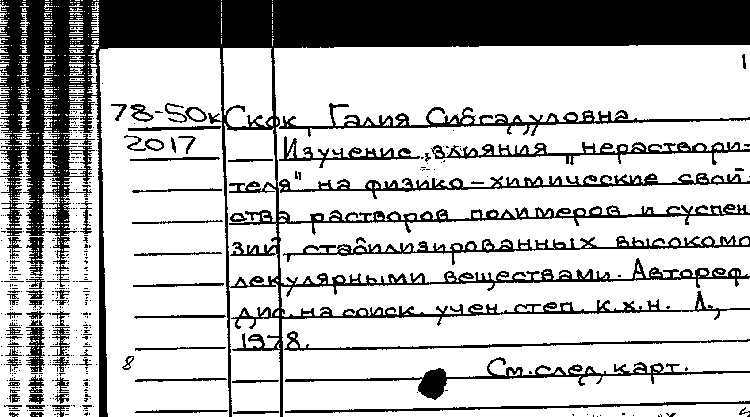 1
78-50к Скок, Галия Сибгадуловна
2017 Изучение влияния "нераствори-
теля" на физико-химические свой-
ства растворов полимеров и суспен
зий, стабилизированных высокомо
лекулярными веществами. Автореф.
дис. на соиск. учен. степ. к.х.н. Л.,
1978.
8
См. след. карт.